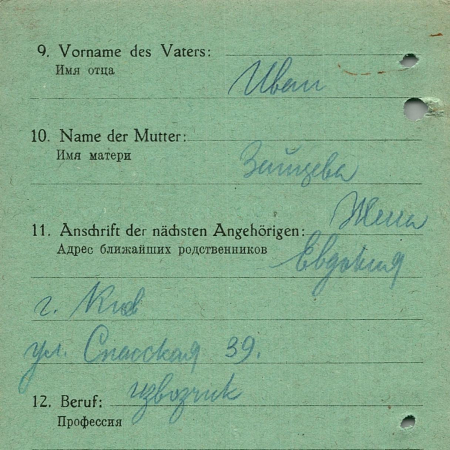 9. Vorname des Vaters:
Имя отца
Иван
10. Name der Mutter:
Имя матери
Зайцева
Жена
11. Anschrift der nächsten Angehörigen:
Адрес ближайших родственников
Евдокия
г. Киев
ул. Спасская 39.
12. Beruf: извозчик
Профессия